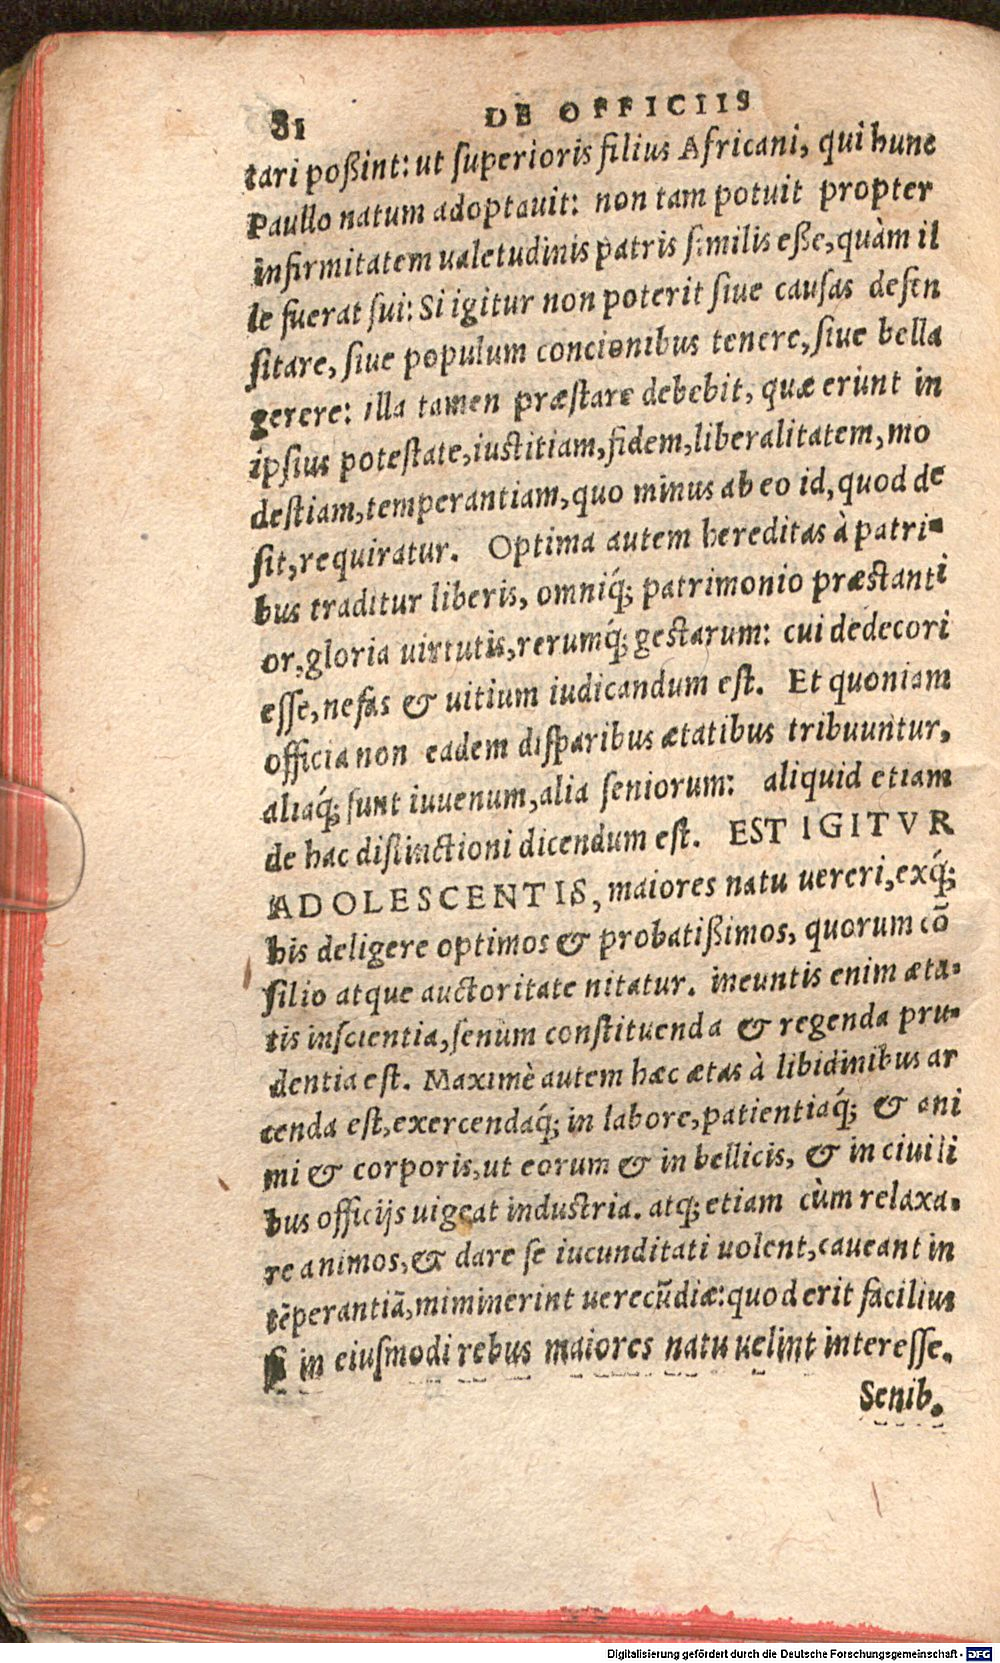 81 DE OFFICIIS
tari poßint: ut superioris filius Africani, qui hunc
Paullo natum adoptauit: non tam potuit propter
infirmitatem ualetudinis patris similis eße, quàm il
le fuerat sui: Si igitur non poterit siue causas defen
sitare, siue populum concionibus tenere, siue bella
gerere: illa tamen præstare debebit, quæ erunt in
ipsius potestate, iustitiam, fidem, liberalitatem, mo
destiam, temperantiam, quo minus ab eo id, quod de
sit, requiratur. Optima autem hereditas à patri-
bus traditur liberis, omniq́; patrimonio præstanti
or, gloria uirtutis, rerumq́; gestarum: cui dedecori
esse, nefas & uitium iudicandum est. Et quoniam
officia non eadem disparibus ætatibus tribuuntur,
aliaq́; sunt iuuenum, alia seniorum: aliquid etiam
de hac distinctioni dicendum est. EST IGITVR
ADOLESCENTIS, maiores natu uereri, exq́;
his deligere optimos & probatißimos, quorum cō
silio atque auctoritate nitatur. ineuntis enim æta-
tis inscientia, senum constituenda & regenda pru-
dentia est. Maximè autem hæc ætas à libidinibus ar
cenda est, exercendaq́; in labore, patientiaq́; & ani
mi & corporis, ut eorum & in bellicis, & in ciuili
bus officijs uigeat industria. atq; etiam cùm relaxa-
re animos, & dare se iucunditati uolent, caueant in
tēperantiā, miminerint uerecūdiæ: quod erit facilius
si in eiusmodi rebus maiores natu uelint interesse.
Senib.
Digitalisierung gefördert durch die Deutsche Forschungsgemeinschaft - DFG